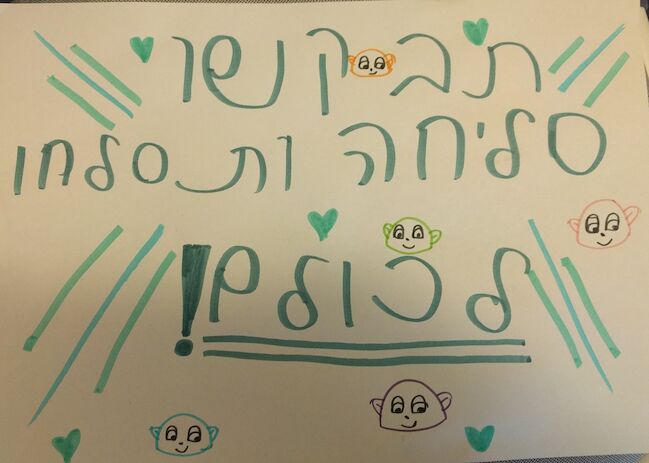 תבקשו
סליחה ותסלחו
לכולם!